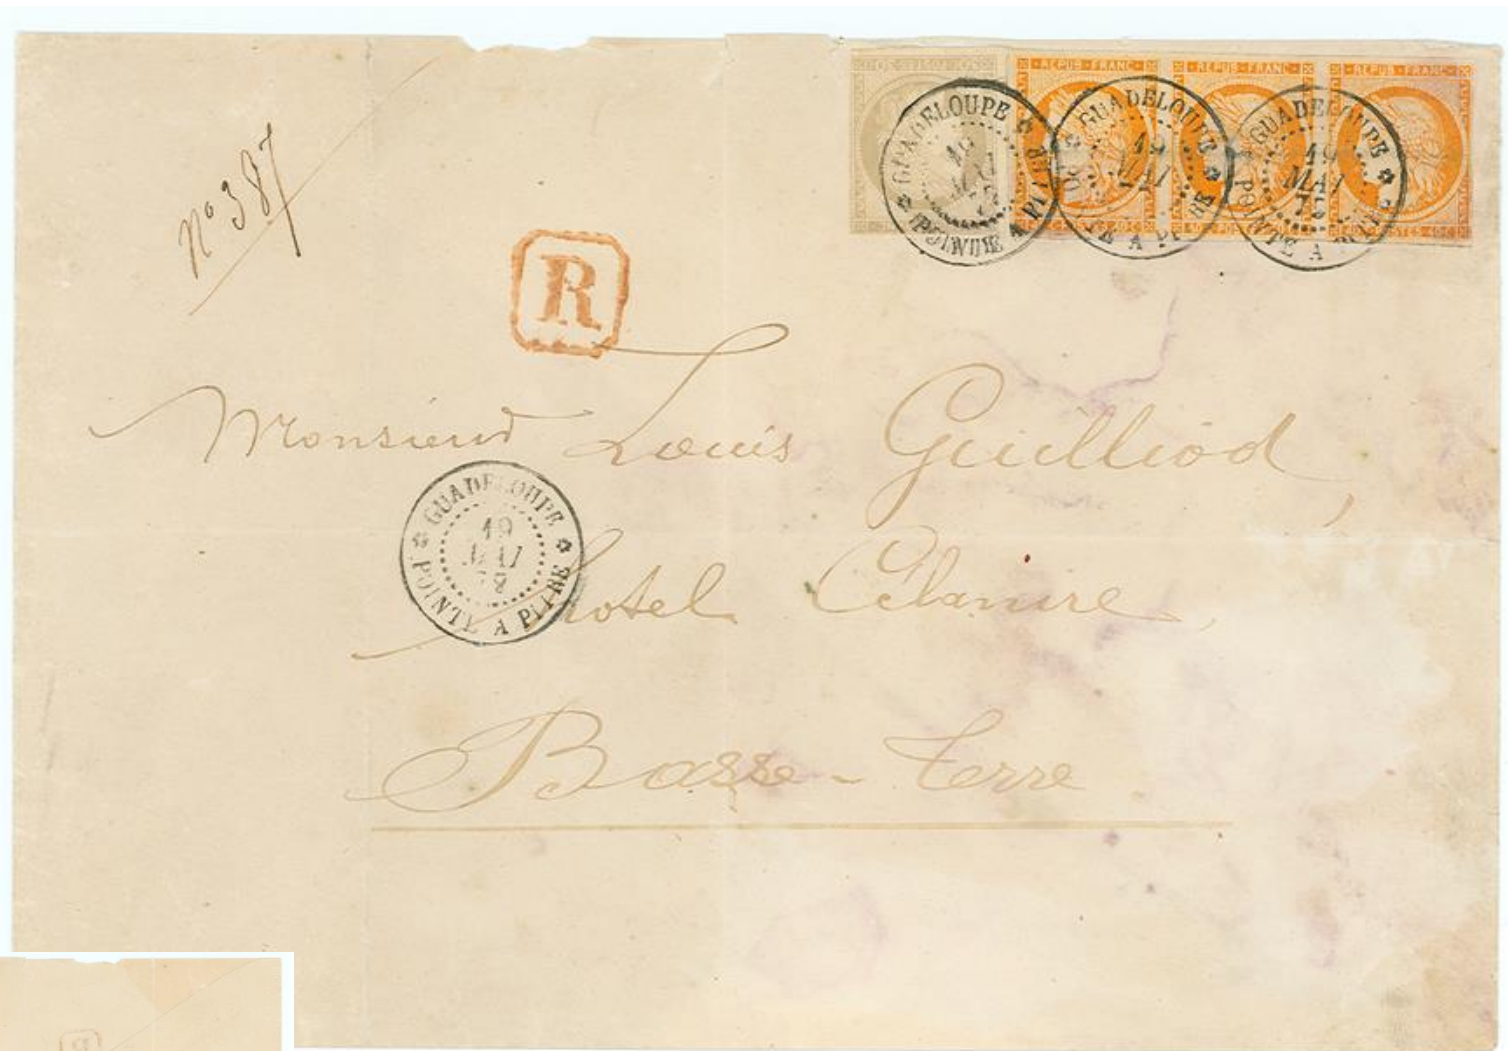 REPUB · FRANC · REPUB · FRANC · REPUB · FRANC ·
GUADELOUPE 19 MAI POINTE A PITRE
GUADELOUPE 19 MAI POINTE A PITRE
GUADELOUPE 19 MAI 72 POINTE A PITRE
40 C · POSTES · 40 C
N° 387
R
Monsieur Louis Guilliod,
GUADELOUPE 19 MAI 72 POINTE A PITRE
hotel
Basse-Terre
R